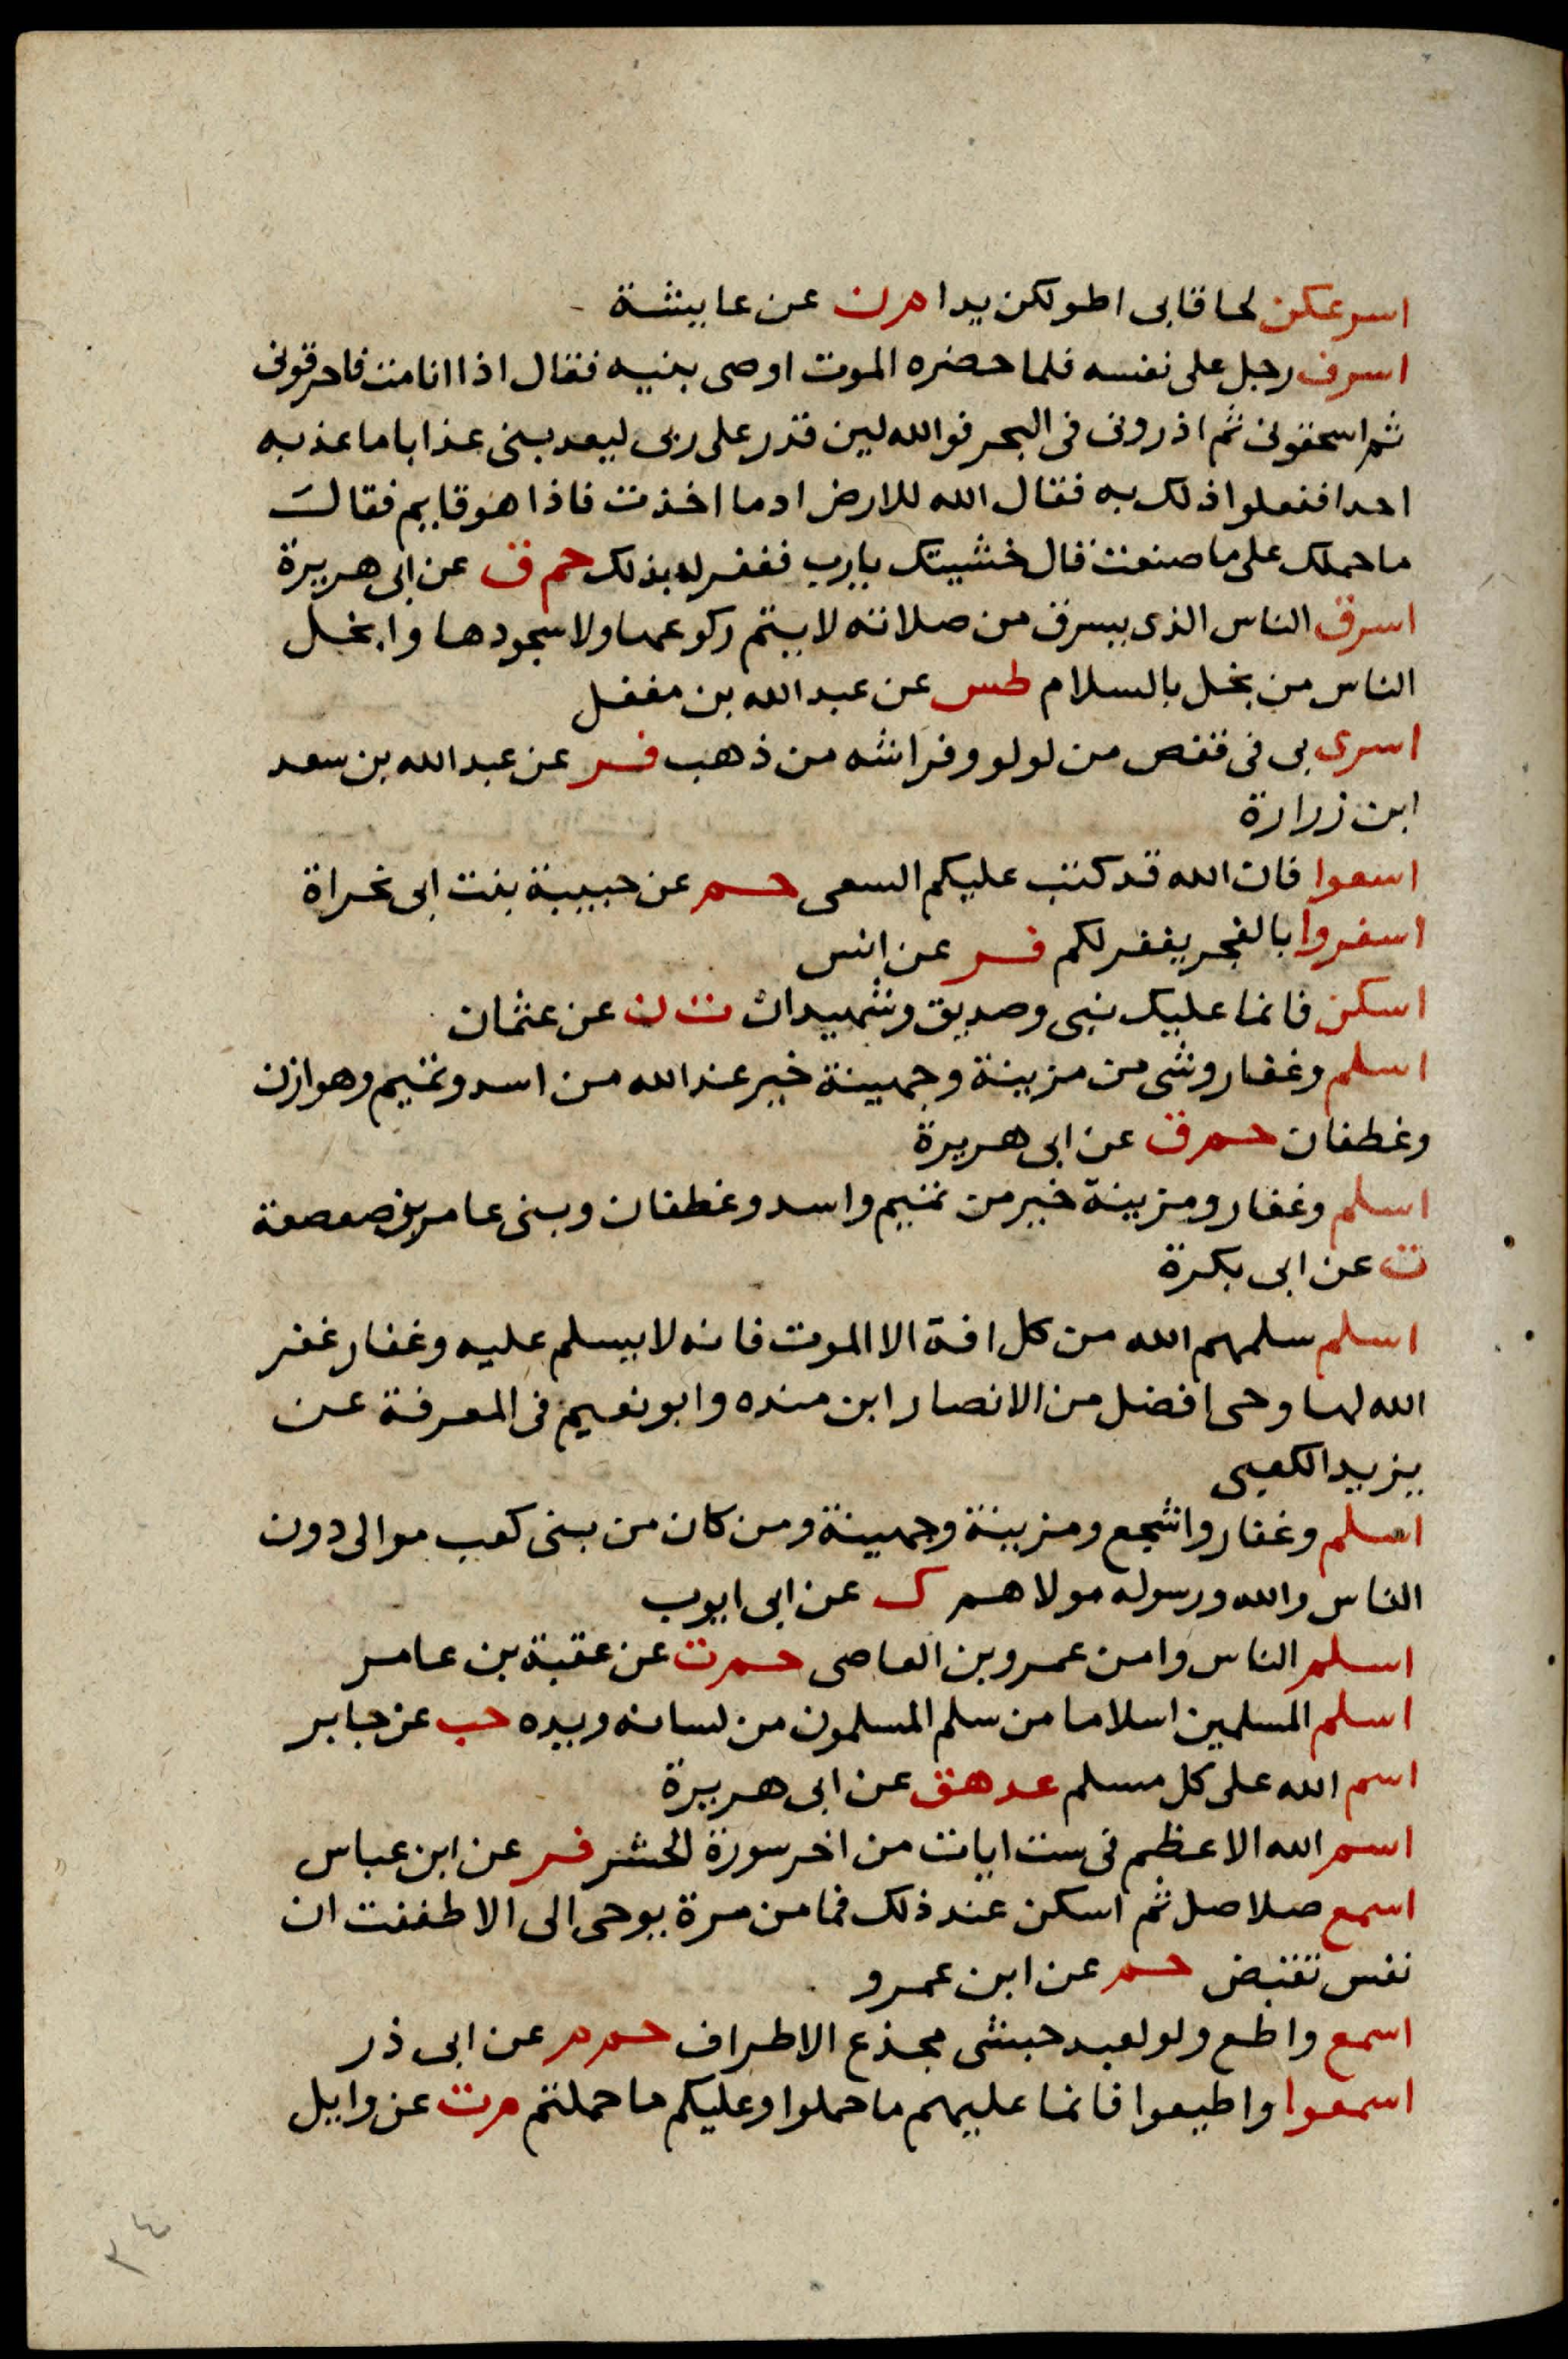 اسرعكن لحاقا بى اطولكن يدا م ن عن عايشة
اسرف رجل على نفسه فلما حضره الموت اوصى بنيه فقال اذا انا مت فاحرقونى
ثم اسحقونى ثم اذرونى فى البحر فوالله لين قدر على ربى ليعذبنى عذابا ما عذبه
احدا ففعلوا ذلك به فقال الله للارض اد ما اخذت فاذا هو قايم فقال
ما حملك على ما صنعت قال خشيتك يا رب فغفر له بذلك حم ق عن ابى هريرة
اسرق الناس الذى يسرق من صلاته لا يتم ركوعها ولا سجودها وابخل
الناس من بخل بالسلام طس عن عبد الله بن مغفل
اسرى بى فى قفص من لولو وفراشه من ذهب فر عن عبد الله بن سعد
ابن زرارة
اسعوا فان الله قد كتب عليكم السعى حم عن حبيبة بنت ابى تجراة
اسفروا بالفجر يغفر لكم فر عن انس
اسكن فانما عليك نبى وصديق وشهيدان ت ن عن عثمان
اسلم وغفار وشى من مزينة وجهينة خير عند الله من اسد وتميم وهوازن
وغطفان حم ق عن ابى هريرة
اسلم وغفار ومزينة خير من تميم واسد وغطفان وبنى عامر بن صعصعة
ت عن ابى بكرة
اسلم سلمهم الله من كل افة الا الموت فانه لا يسلم عليه وغفار غفر
الله لها وحى افضل من الانصار ابن منده وابو نعيم فى المعرفة عن
يزيد الكعبى
اسلم وغفار واشجع ومزينة وجهينة ومن كان من بنى كعب موالى دون
الناس والله ورسوله مولاهم ك عن ابى ايوب
اسلم الناس وامن عمرو بن العاصى حم ت عن عقبة بن عامر
اسلم المسلمين اسلاما من سلم المسلمون من لسانه ويده حب عن جابر
اسم الله على كل مسلم عد هق عن ابى هريرة
اسم الله الاعظم فى ست ايات من اخر سورة الحشر فر عن ابن عباس
اسمع صلاصل ثم اسكن عند ذلك فما من مرة يوحى الى الا طفنت ان
نفس تقبض حم عن ابن عمرو
اسمع واطع ولو لعبد حبشى مجذع الاطراف حم م عن ابى ذر
اسمعوا واطيعوا فانما عليهم ما حملوا وعليكم ما حملتم م ت عن وايل
٣٤